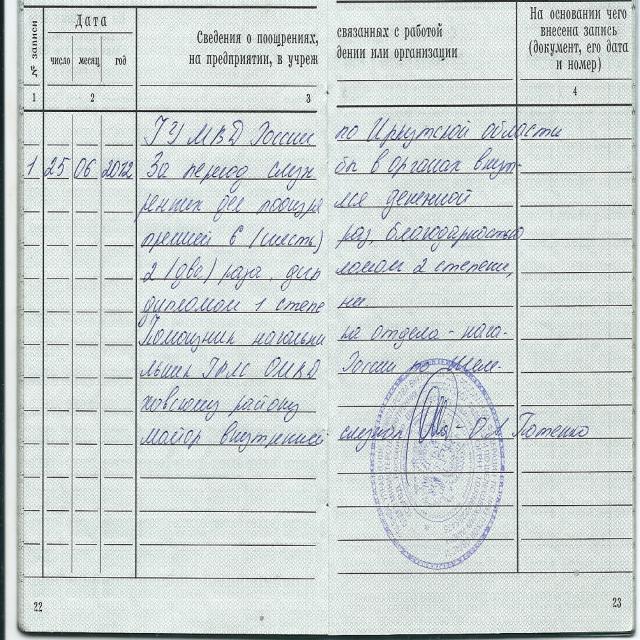 № записи
Дата
число месяц год
Сведения о поощрениях, связанных с работой
на предприятии, в учреж дении или организации
На основании чего
внесена запись
(документ, его дата
и номер)
1 2 3 4
ГУ МВД России по Иркутской области
1 25 06 2012 За период служ бы в органах внут-
ренних дел поощря лся денежной
премией 6 (шесть) раз, благодарностью
2 (два) раза, дип ломом 2 степени,
дипломом 1 степе ни.
Помощник начальни ка отдела - нача-
льник ГРЛС ОМВД России по Шеле-
ховскому району
майор внутренней службы О.А. Потенко
22
23